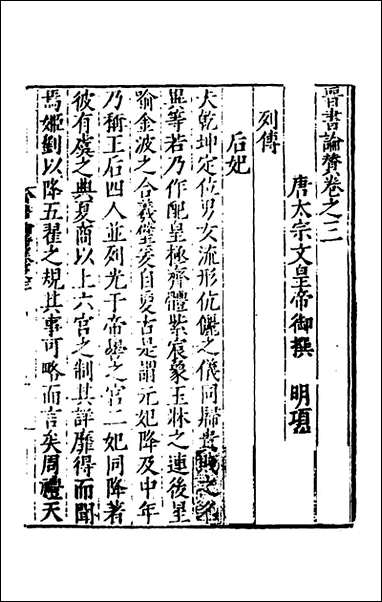 晉書論贊卷之三
唐太宗文皇帝御撰 明項
列傳
后妃
夫乾坤定位男女流形伉儷之儀同歸貴賤之名
異等若乃作配皇極齊體紫宸象玉牀之連後星
喻金波之合羲璧爰自夐古是謂元妃降及中年
乃稱王后四人並列光于帝嚳之宮二妃同降著
彼有虞之典夏商以上六宮之制其詳靡得而聞
焉姬劉以降五翟之規其事可略而言矣周禮天